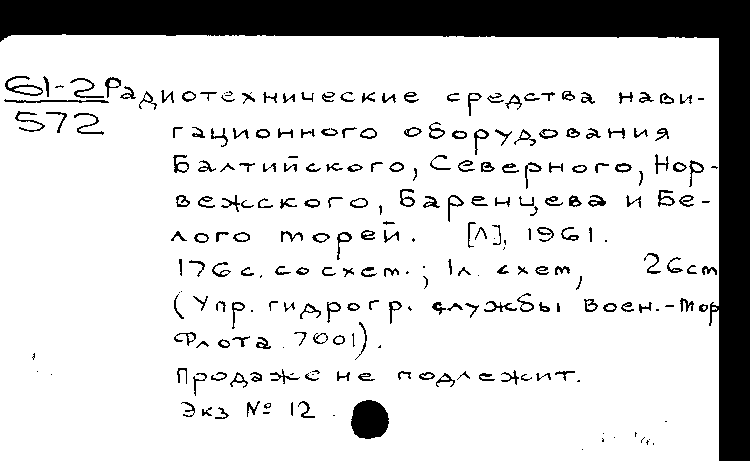 61-2 Радиотехнические средства нави-
572 гационного оборудования
Балтийского, Северного, Нор-
вежского, Баренцева и Бе-
лого морей. [Л], 1961.
176 с. со схем.; 1 л. схем, 26 cm
(Упр. гидрогр. службы Воен.-Мор
Флота. 7001).
Продаже не подлежит.
Экз № 12.